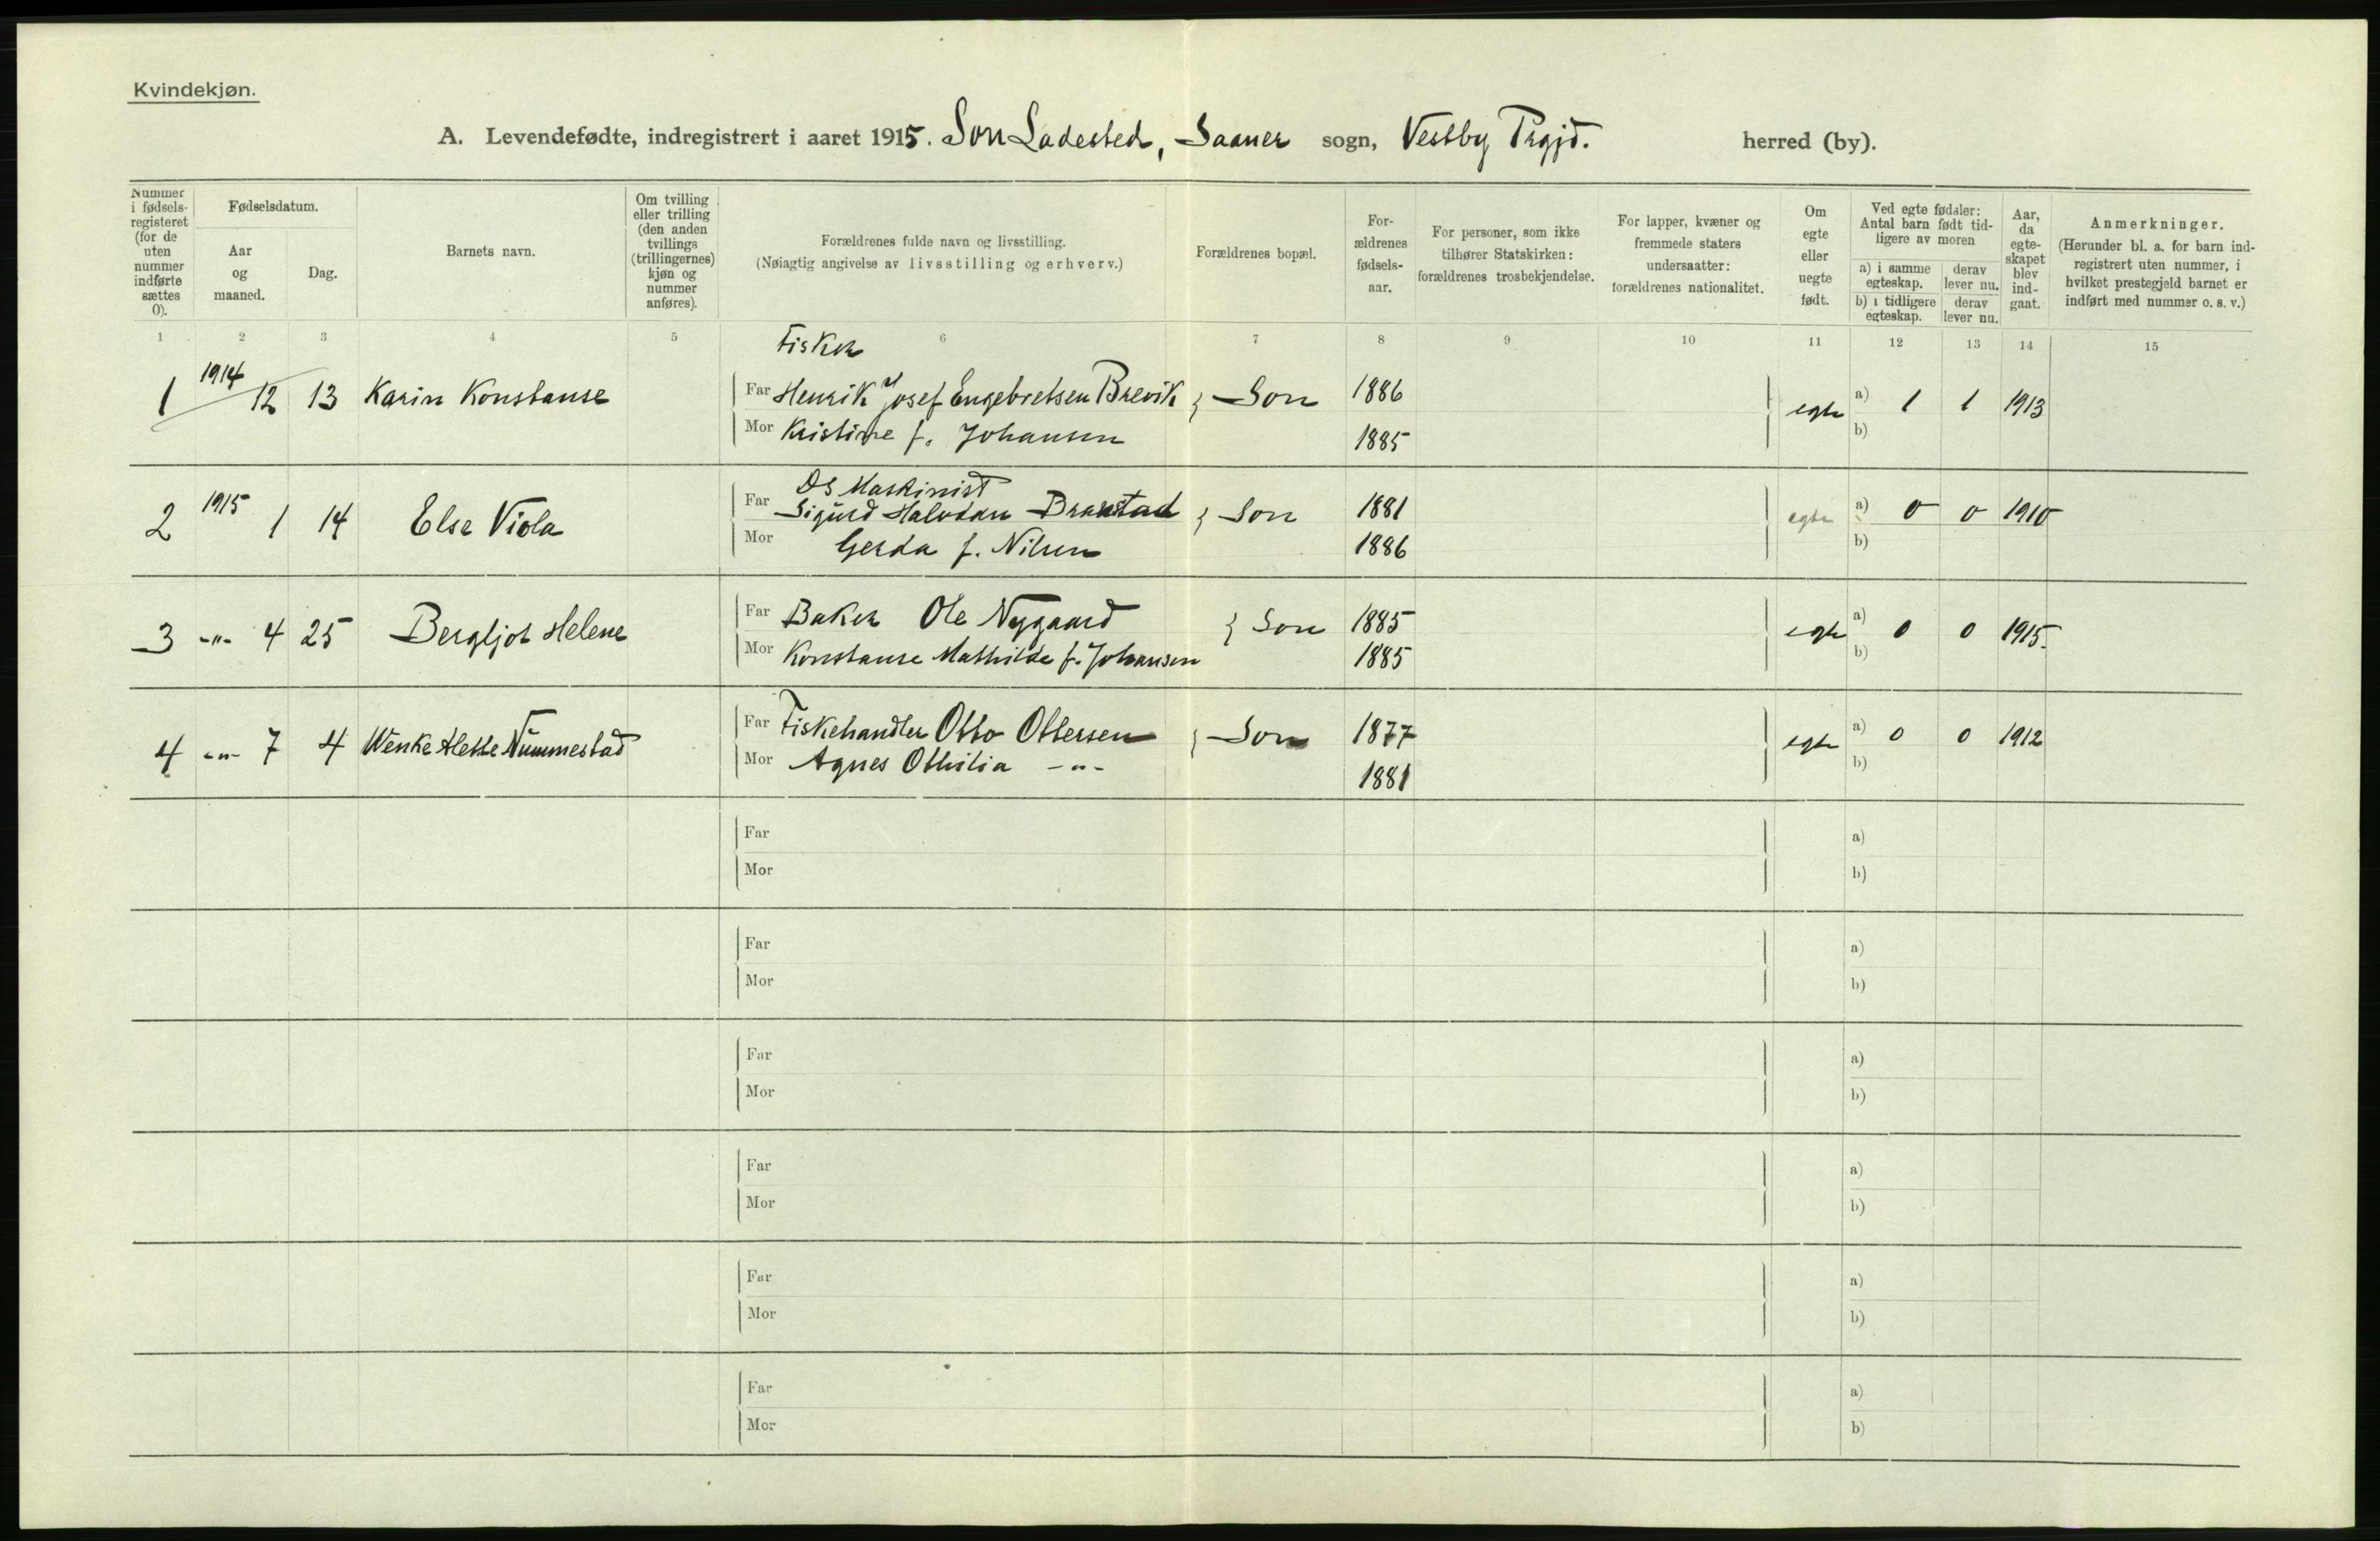 Kvindekjøn.
A. Levendefødte, indregistrert i aaret 1915. Son Ladested, Saaner sogn, Vestby Prgjd. herred (by).
Nummer i fødsels-registeret (for de uten nummer indførte sættes 0).
Fødselsdatum.
Aar og maaned.
Dag.
Barnets navn.
Om tvilling eller trilling (den anden tvillings (trillingernes) kjøn og nummer anføres).
Forældrenes fulde navn og livsstilling.
(Nøiagtig angivelse av livsstilling og erhverv.)
Forældrenes bopæl.
For-ældrenes fødsels-aar.
For personer, som ikke tilhører Statskirken: forældrenes trosbekjendelse.
For lapper, kvæner og fremmede staters undersaatter: forældrenes nationalitet.
Om egte eller uegte født.
Ved egte fødsler: Antal barn født tid-ligere av moren
a) i samme egteskap.
derav lever nu.
b) i tidligere egteskap.
derav lever nu.
Aar, da egte-skapet blev ind-gaat.
Anmerkninger.
(Herunder bl. a. for barn ind-registrert uten nummer, i hvilket prestegjeld barnet er indført med nummer o. s. v.)
1 2 3 4 5 6 7 8 9 10 11 12 13 14 15
Fisker
1 1914 12 13 Karin Konstanse Far Henrik Josef Engebretsen Brevik } Son 1886 egte a) 1 1 1913
Mor Kristine f. Johansen 1885 b)
DS Maskinist
2 1915 1 14 Else Viola Far Sigurd Halvdan Braastad } Son 1881 egte a) 0 0 1910
Mor Gerda f. Nilsen 1886 b)
3 -"- 4 25 Bergljot Helene Far Baker Ole Nygaard } Son 1885 egte a) 0 0 1915.
Mor Konstanse Mathilde f. Johansen 1885 b)
4 -"- 7 4 Wenke Mette Nummestad Far Fiskehandler Otto Ottersen } Son 1877 egte a) 0 0 1912
Mor Agnes Othilia -"- 1881 b)
Far a)
Mor b)
Far a)
Mor b)
Far a)
Mor b)
Far a)
Mor b)
Far a)
Mor b)
Far a)
Mor b)